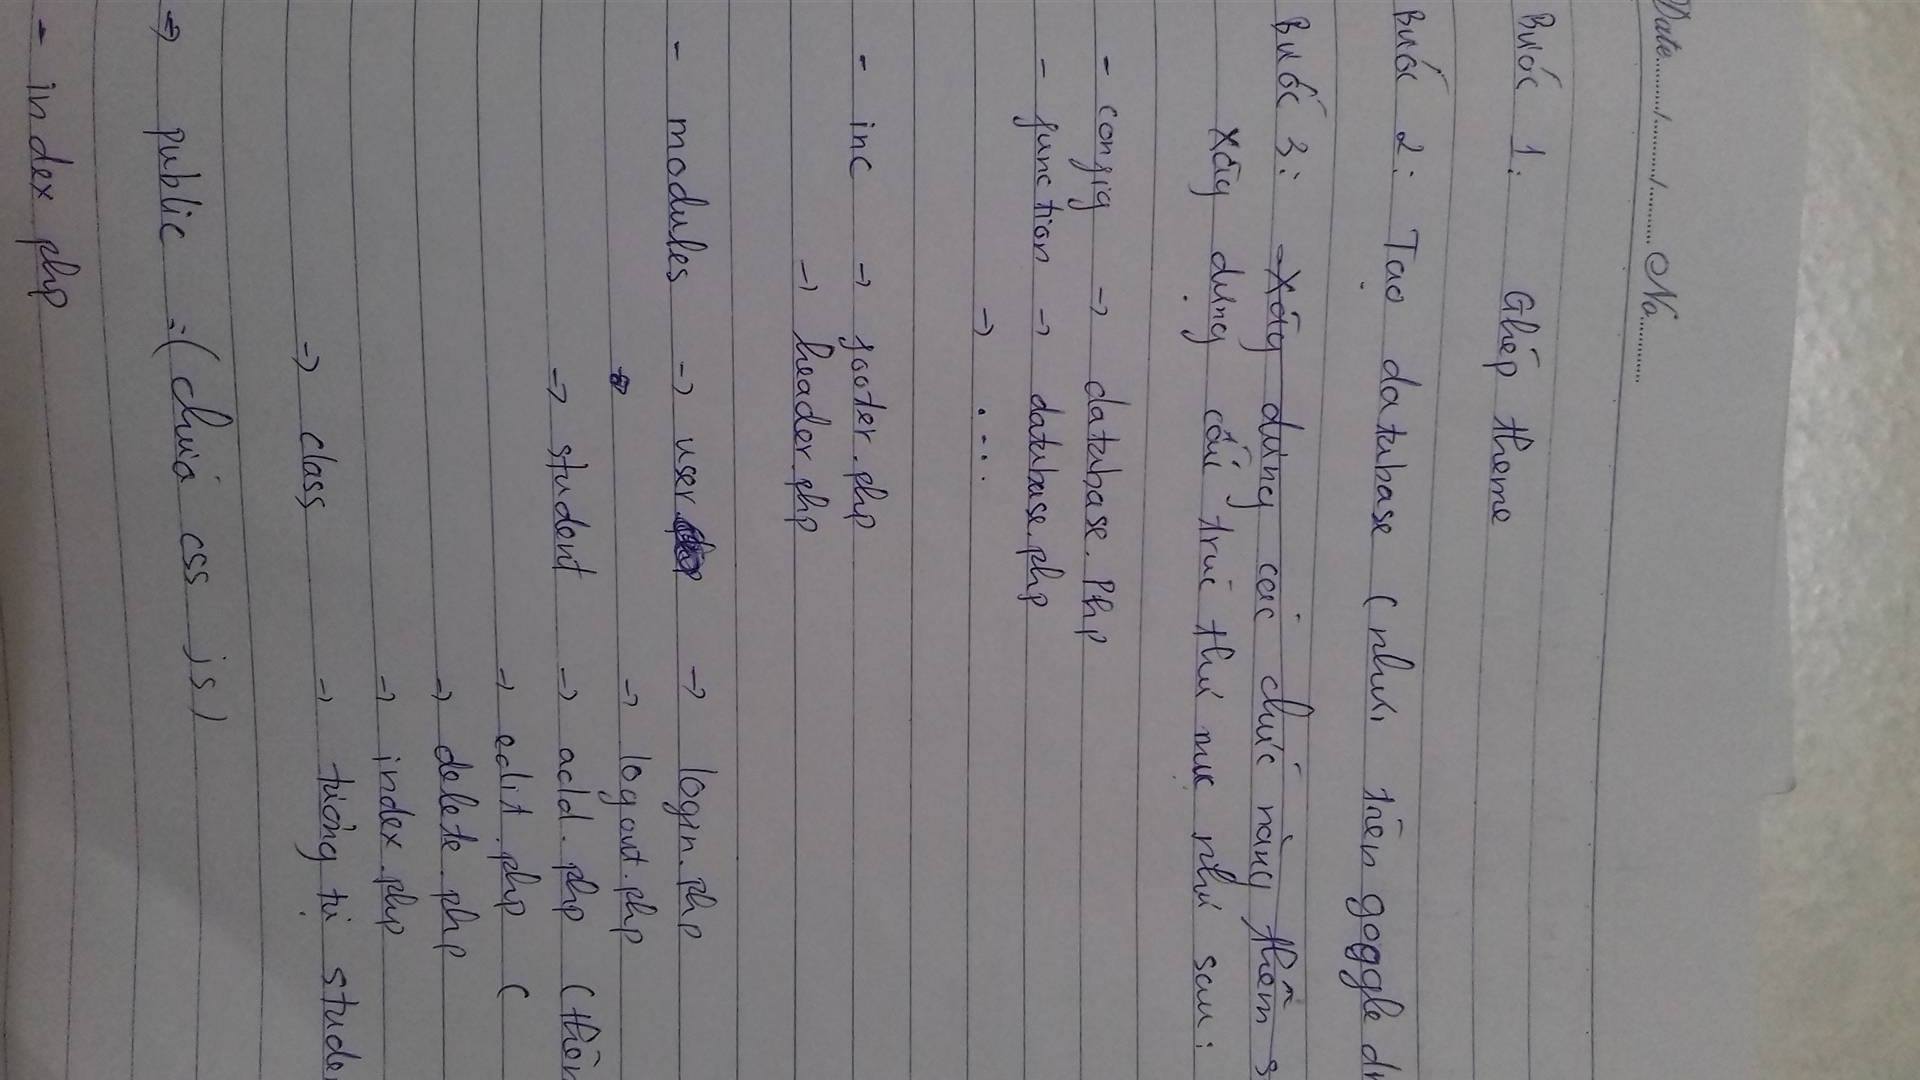 Date......../......../........ No............
Bước 1: Ghép theme
Bước 2: Tạo database (như trên goggle dr
Bước 3: Xây dựng các chức năng thêm s
Xây dựng cấu trúc thư mục như sau:
- config → database.Php
- function → database.php
→ ....
- inc → footer.php
→ header.php
- modules → user → login.php
→ logout.php
→ student → add.php (thêm
→ edit.php (
→ delete.php
→ index.php
→ class → tương tự stude
→ public :(chứa css js)
- index php